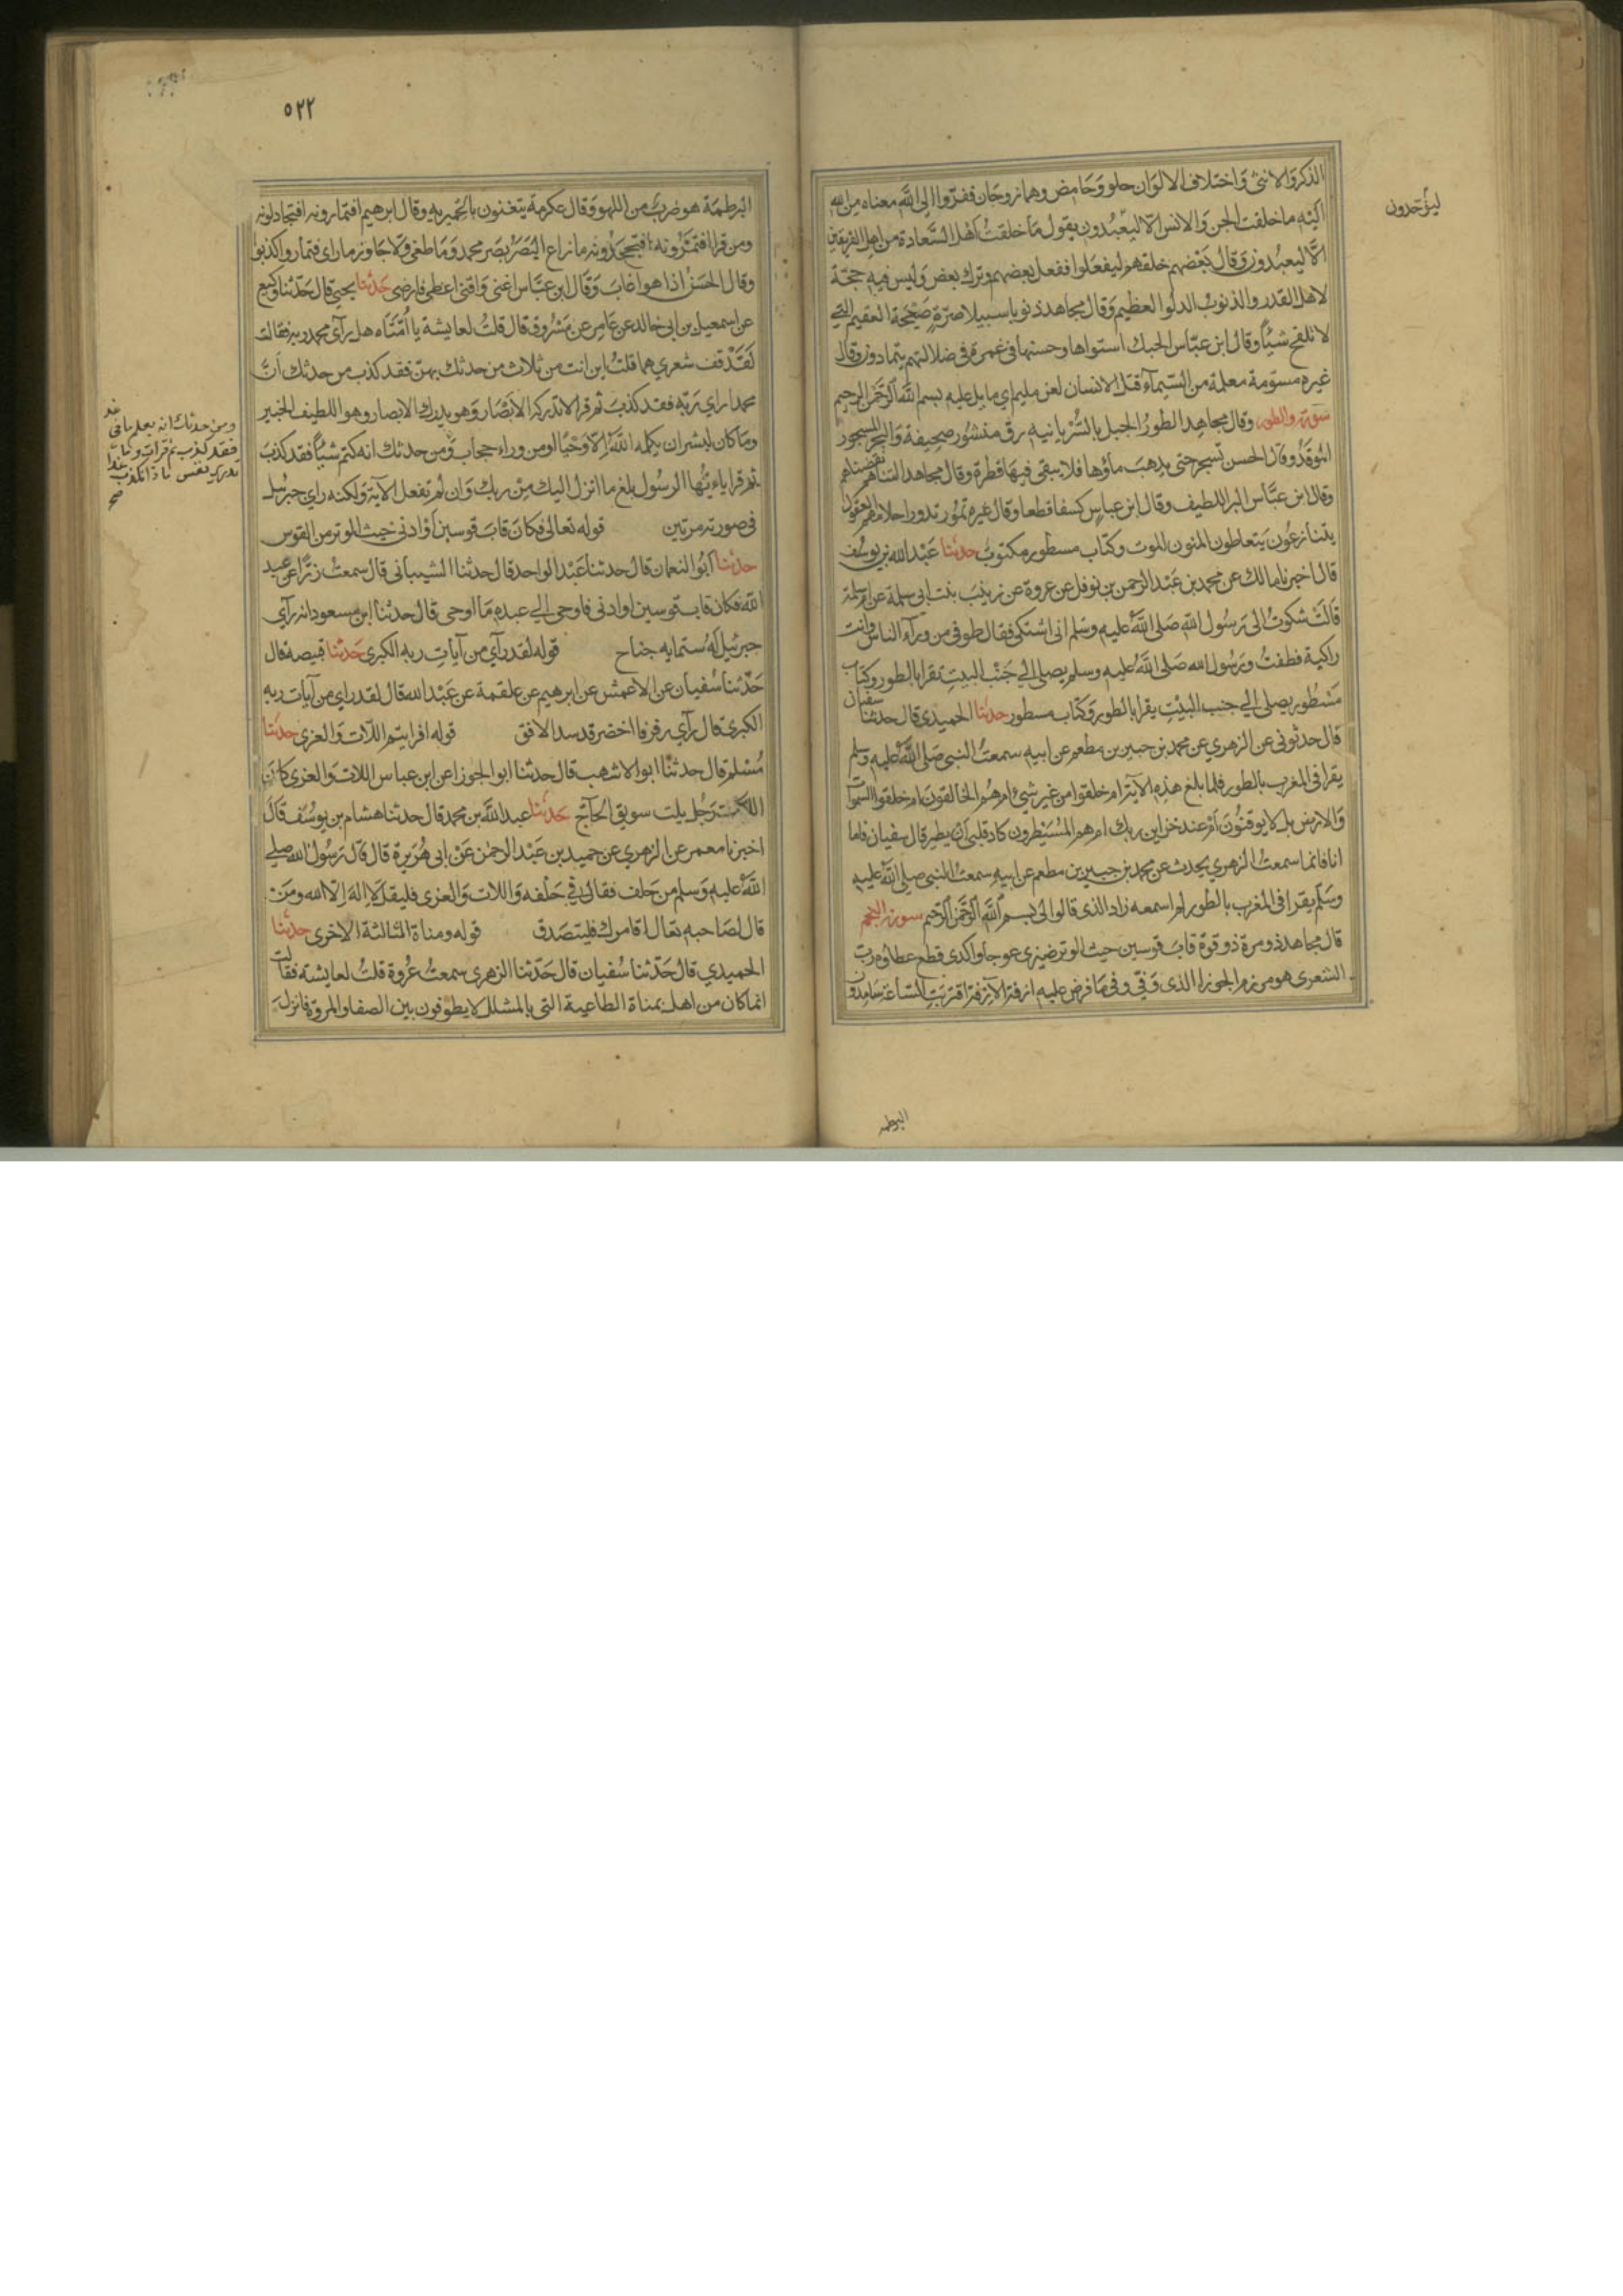 الذكر والانثى واختلاف الالوان حلو وحامض وهما زوجان ففروا الى الله معناه من الله
اليه ما خلقت الجن والانس الا ليعبدون يقول ما خلقت اهل السعادة من اهل الفريقين
الا ليعبدون وقال بعضهم خلقهم ليفعلوا ففعل بعضهم وترك بعض وليس فيه حجة
لاهل القدر والذنوب الدلوا العظيم وقال مجاهد ذنوبا سبيلا صرة صيحة العقيم التي
لا تلقح شيئا وقال ابن عباس الحبك استواها وحسنها في غمرة في ضلالتهم يتمادون وقال
غيره مسومة معلمة من السيماء قتل الانسان لعن مليم اي ما يل عليه بسم الله الرحمن الرحيم
سورة والطور وقال مجاهد الطور الجبل بالسريانيه رق منشور صحيفة والبحر المسجور
الموقد وقال الحسن تسجر حتى يذهب ماؤها فلا يبقى فيها قطرة وقال مجاهد التناهم نقصناهم
وقال ابن عباس البر اللطيف وقال ابن عباس كسفا قطعا وقال غيره تمور تدور احلامهم العقول
يتنازعون يتعاطون المنون الموت وكتاب مسطور مكتوب حدثنا عبد الله بن يوسف
قال اخبرنا مالك عن محمد بن عبد الرحمن بن نوفل عن عروة عن زينب بنت ابي سلمة عن ام سلمة
قالت شكوت الى رسول الله صلى الله عليه وسلم اني اشتكي فقال طوفي من وراء الناس وانت
راكبة فطفت ورسول الله صلى الله عليه وسلم يصلي الي جنب البيت يقرا بالطور وكتاب
مسطور يصلي الي جنب البيت يقرا بالطور وكتاب مسطور حدثنا الحميدي قال حدثنا سفيان
قال حدثوني عن الزهري عن محمد بن جبير بن مطعم عن ابيه سمعت النبي صلى الله عليه وسلم
يقرا في المغرب بالطور فلما بلغ هذه الاية ام خلقوا من غير شيء ام هم الخالقون ام خلقوا السموات
والارض بل لا يوقنون ام عندهم خزاين ربك ام هم المسيطرون كاد قلبي ان يطير قال سفيان فاما
انا فانما سمعت الزهري يحدث عن محمد بن جبير بن مطعم عن ابيه سمعت النبي صلى الله عليه
وسلم يقرا في المغرب بالطور لم اسمعه زاد الذي قالوا لي بسم الله الرحمن الرحيم سورة النجم
قال مجاهد ذو مرة ذو قوة قاب قوسين حيث الوتر ضيزى عوجا واكدى قطع عطاؤه رب
الشعرى هو مرزم الجوزا الذي وفي وفي ما فرض عليه ازفة الازفة اقتربت الساعة سامدون
ليؤحدون
البرطمه
٥٢٢
البرطمة هو ضرب من اللهو وقال عكرمة يتغنون بالحميريه وقال ابرهيم افتمارونه افتجادلونه
ومن قرا افتمرونه افتجحدونه ما زاغ البصر بصر محمد وما طغى ولا جاوز ما راى فتماروا كذبوا
وقال الحسن اذا هوا غاب وقال ابن عباس اغنى واقنى اعطى فارضى حدثنا يحيى قال حدثنا وكيع
عن اسمعيل بن ابي خالد عن عامر عن مسروق قال قلت لعايشة يا امتاه هل راى محمد ربه فقالت
لقد قف شعري مما قلت اين انت من ثلاث من حدثك بهن فقد كذب من حدثك ان
محمدا راي ربه فقد كذب ثم قرا لا تدركه الابصار وهو يدرك الابصار وهو اللطيف الخبير
وما كان لبشر ان يكلمه الله الا وحيا او من وراء حجاب ومن حدثك انه كتم شيئا فقد كذب
ثم قرا ياءيها الرسول بلغ ما انزل اليك من ربك وان لم تفعل الاية ولكنه راي جبرئيل
في صورته مرتين قوله تعالى فكان قاب قوسين او ادنى حيث الوتر من القوس
حدثنا ابو النعمان قال حدثنا عبد الواحد قال حدثنا الشيباني قال سمعت زرا عن عبد
الله فكان قاب قوسين او ادنى فاوحى الي عبده ما اوحى قال حدثنا ابن مسعود انه راي
جبرئيل له ستمايه جناح قوله لقد راي من آيات ربه الكبرى حدثنا قبيصة قال
حدثنا سفيان عن الاعمش عن ابرهيم عن علقمة عن عبد الله قال لقد راي من آيات ربه
الكبرى قال راي رفرفا اخضر قد سد الافق قوله افرايتم اللات والعزى حدثنا
مسلم قال حدثنا ابو الاشهب قال حدثنا ابو الجوزا عن ابن عباس اللات والعزى كان
اللات رجل يلت سويق الحاج حدثنا عبد الله بن محمد قال حدثنا هشام بن يوسف قال
اخبرنا معمر عن الزهري عن حميد بن عبد الرحمن عن ابي هريرة قال قال رسول الله صلي
الله عليه وسلم من حلف فقال في حلفه واللات والعزى فليقل لا اله الا الله ومن
قال لصاحبه تعال اقامرك فليتصدق قوله ومناة الثالثة الاخرى حدثنا
الحميدي قال حدثنا سفيان قال حدثنا الزهري سمعت عروة قلت لعايشة فقالت
انما كان من اهل بمناة الطاغية التي بالمشلل لا يطوفون بين الصفا والمروة فانزل
ومن حدثك انه يعلم ما في غد
فقد كذب ثم قرات وما
تدري نفس ماذا تكسب غدا
صح